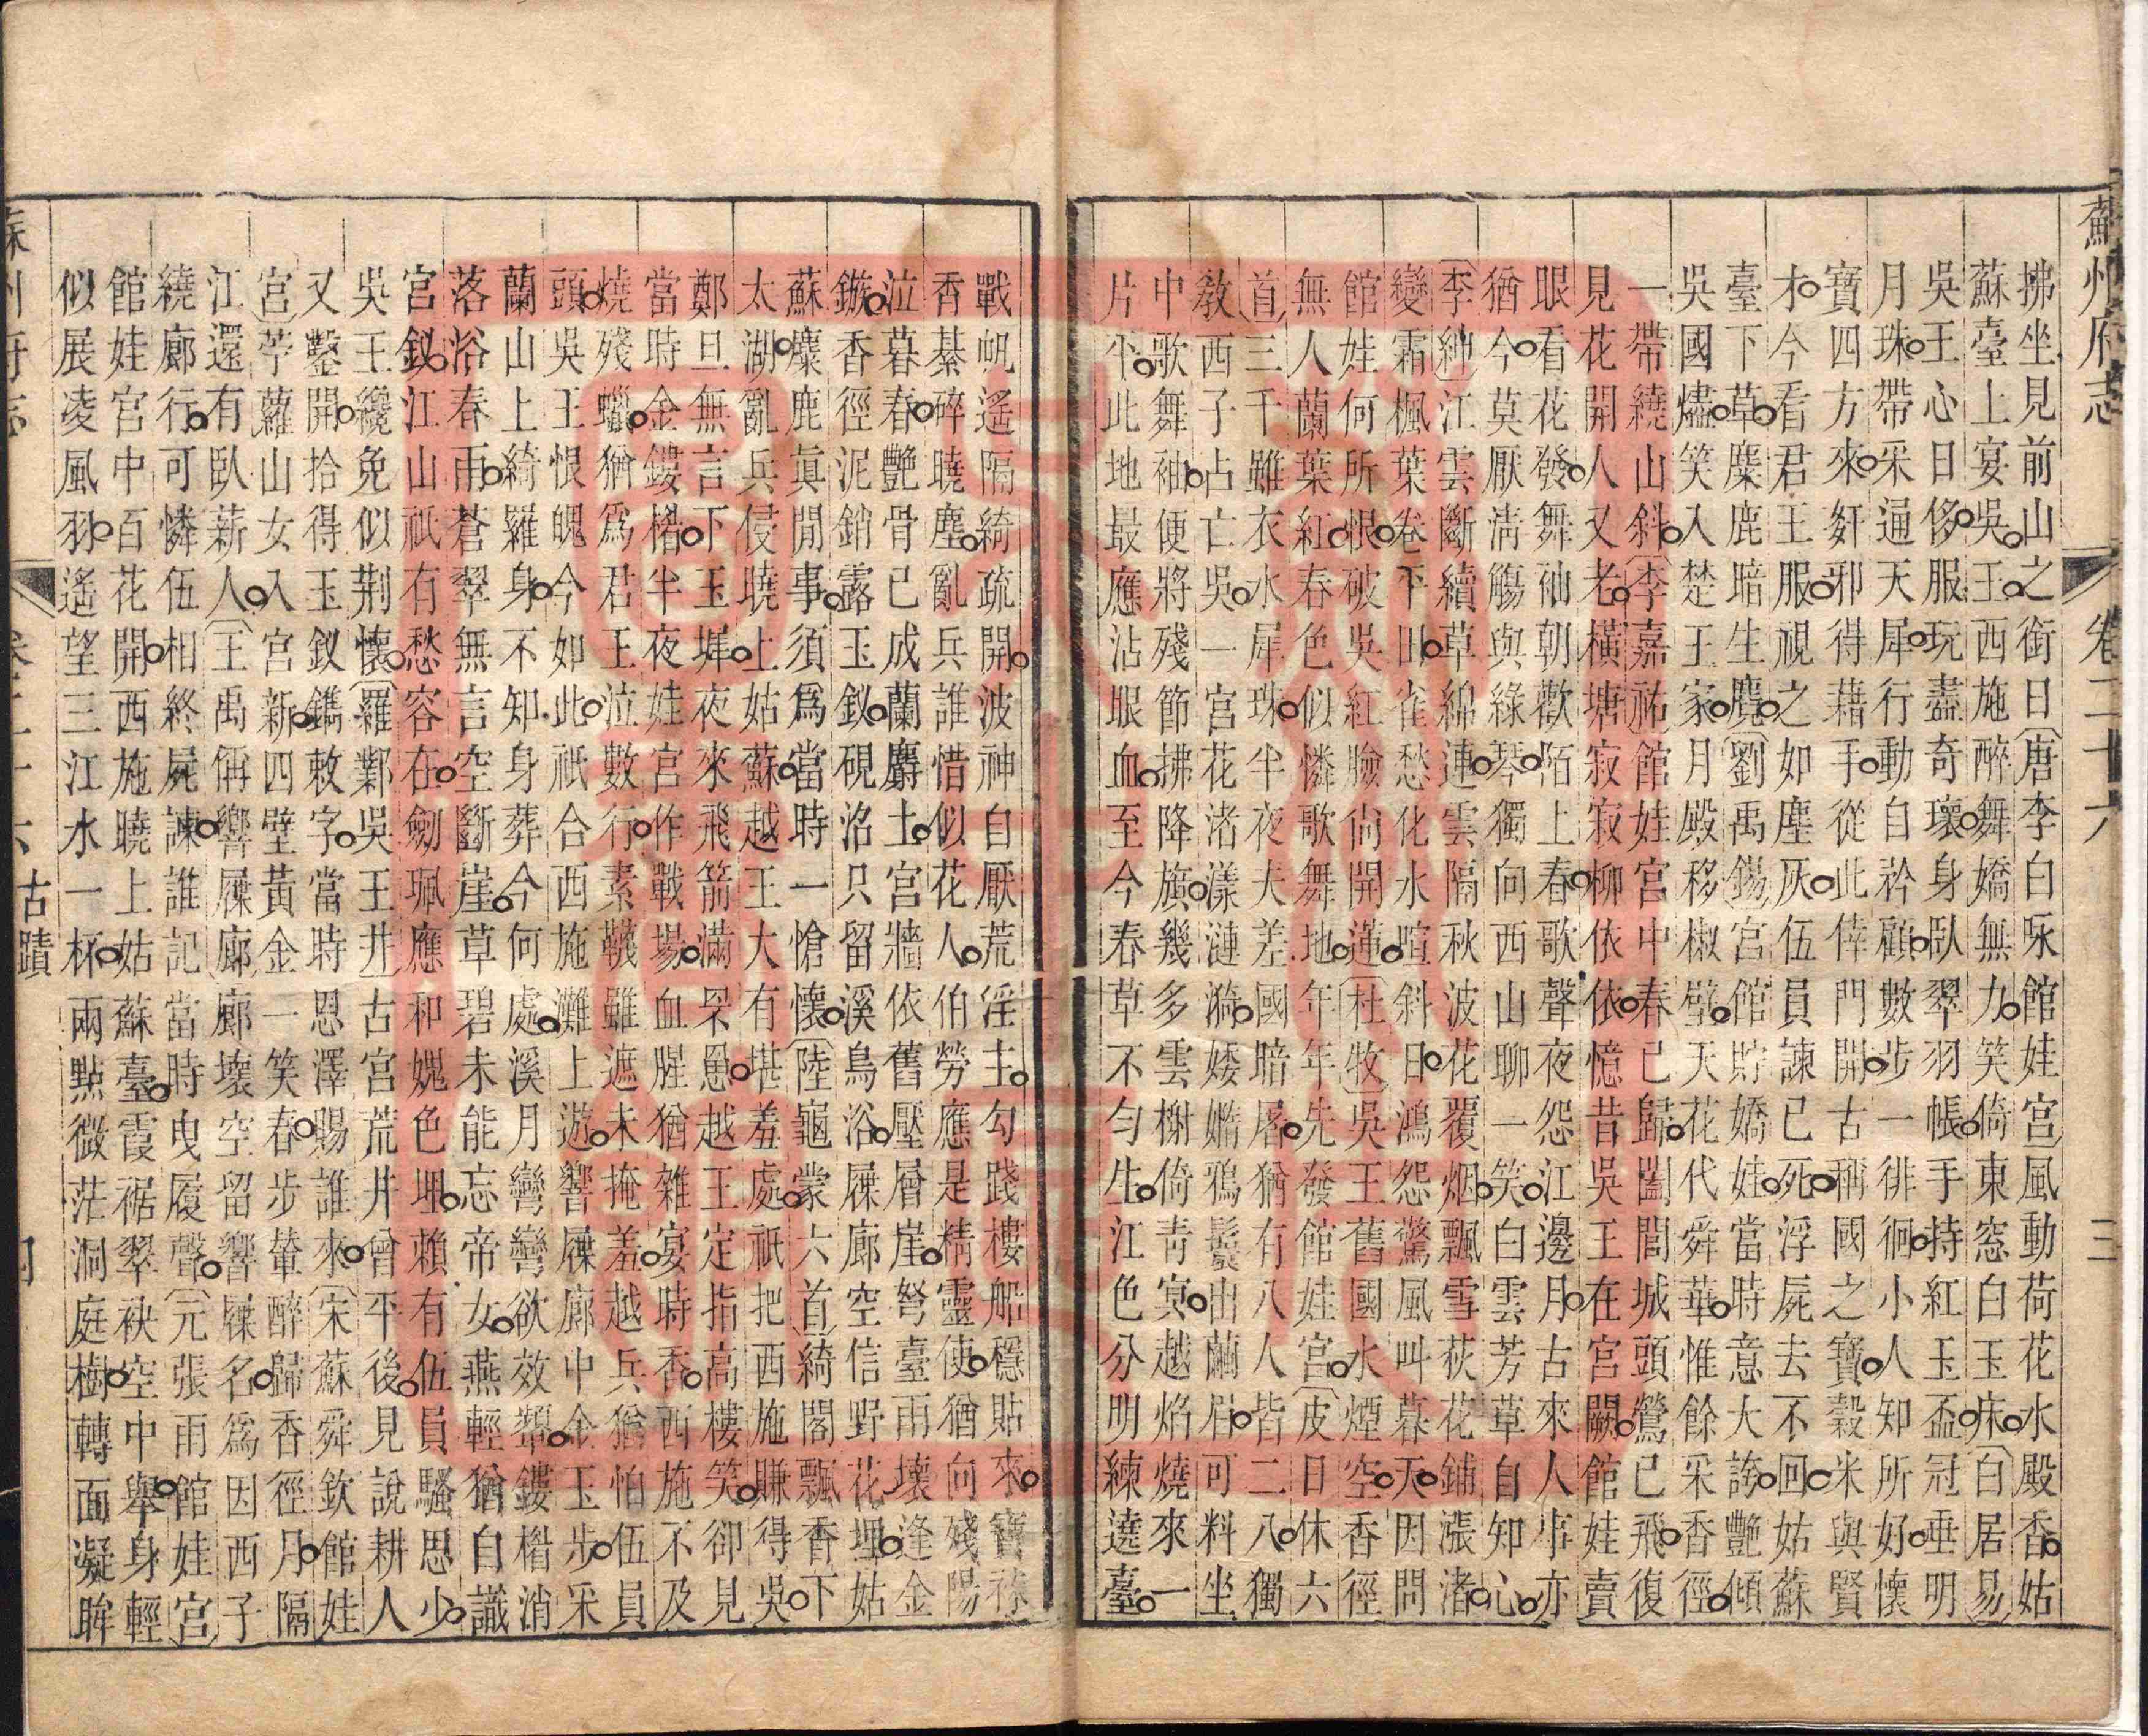 蘇州府志 卷二十六 三
拂坐見前山之銜日唐李白咏館娃宮風動荷花水殿香姑
蘇臺上宴吳王西施醉舞嬌無力笑倚東窓白玉床白居易
吳王心日侈服玩盡奇瓌身臥翠羽帳手持紅玉盃冠垂明
月珠帶采通天犀行動自矜顧數步一徘徊小人知所好懷
寶四方來奸邪得藉手從此倖門開古稱國之寶穀米與賢
才今看君王服視之如塵灰伍員諫已死浮屍去不回姑蘇
臺下草麋鹿暗生麑劉禹錫宮館貯嬌娃當時意大誇艷傾
吳國燼笑入楚王家月殿移椒壁天花代舜華惟餘采香徑
一帶繞山斜李嘉祐館娃宮中春已歸闔閭城頭鶯已飛復
見花開人又老橫塘寂寂柳依依憶昔吳王在宮闕館娃賣
眼看花發舞袖朝歡陌上春歌聲夜怨江邊月古來人事亦
猶今莫厭清觴與綠琴獨向西山聊一笑白雲芳草自知心
李紳江雲斷續草綿連雲隔秋波花覆烟飄雪荻花鋪漲渚
變霜楓葉卷平田雀愁化水喧斜日鴻怨驚風叫暮天因問
館娃何所恨破吳紅臉尚開蓮杜牧吳王舊國水煙空香徑
無人蘭葉紅春色似憐歌舞地年年先發館娃宮皮日休六
首三千雖衣水犀珠半夜夫差國暗屠猶有八人皆二八獨
教西子占亡吳一宮花渚漾漣漪婑媠鴉鬟出繭眉可料坐
中歌舞袖便將殘節拂降旗幾多雲榭倚青冥越焰燒來一
片平此地最應沾眼血至今春草不勻生江色分明練遶臺
戰帆遙隔綺疏開波神自厭荒淫主勾踐樓船穩貼來寶袜
香綦碎曉塵亂兵誰惜似花人伯勞應是精靈使猶向殘陽
泣暮春艷骨已成蘭麝土宮牆依舊壓層崖弩臺雨壞逢金
鏃香徑泥銷露玉釵硯沼只留溪鳥浴屧廊空信野花埋姑
蘇麋鹿真閒事須為當時一愴懷陸龜蒙六首綺閣飄香下
太湖亂兵侵曉上姑蘇越王大有堪羞處祇把西施賺得吳
鄭旦無言下玉墀夜來飛箭滿罘罳越王定指高樓笑卻見
當時金鏤楣半夜娃宮作戰場血腥猶雜宴時香西施不及
燒殘蠟猶為君王泣數行素韈雖遮未掩羞越兵猶怕伍員
頭吳王恨魄今如此祇合西施灘上遊響屧廊中金玉步采
蘭山上綺羅身不知身葬今何處溪月彎彎欲效顰鏤楣消
落浴春雨蒼翠無言空斷崖草碧未能忘帝女燕輕猶自識
宮釵江山祇有愁容在劍珮應和媿色埋賴有伍員騷思少
吳王纔免似荆懷羅鄴吳王井古宮荒井曾平後見說耕人
又鑿開拾得玉釵鐫敕字當時恩澤賜誰來宋蘇舜欽館娃
宮苧蘿山女入宮新四壁黃金一笑春步輦醉歸香徑月隔
江還有臥薪人王禹偁響屧廊廊壞空留響屧名為因西子
繞廊行可憐伍相終屍諫誰記當時曳履聲元張雨館娃宮
館娃宮中百花開西施曉上姑蘇臺霞裾翠袂空中舉身輕
似展凌風羽遙望三江水一杯兩點微茫洞庭樹轉面凝眸
古蹟